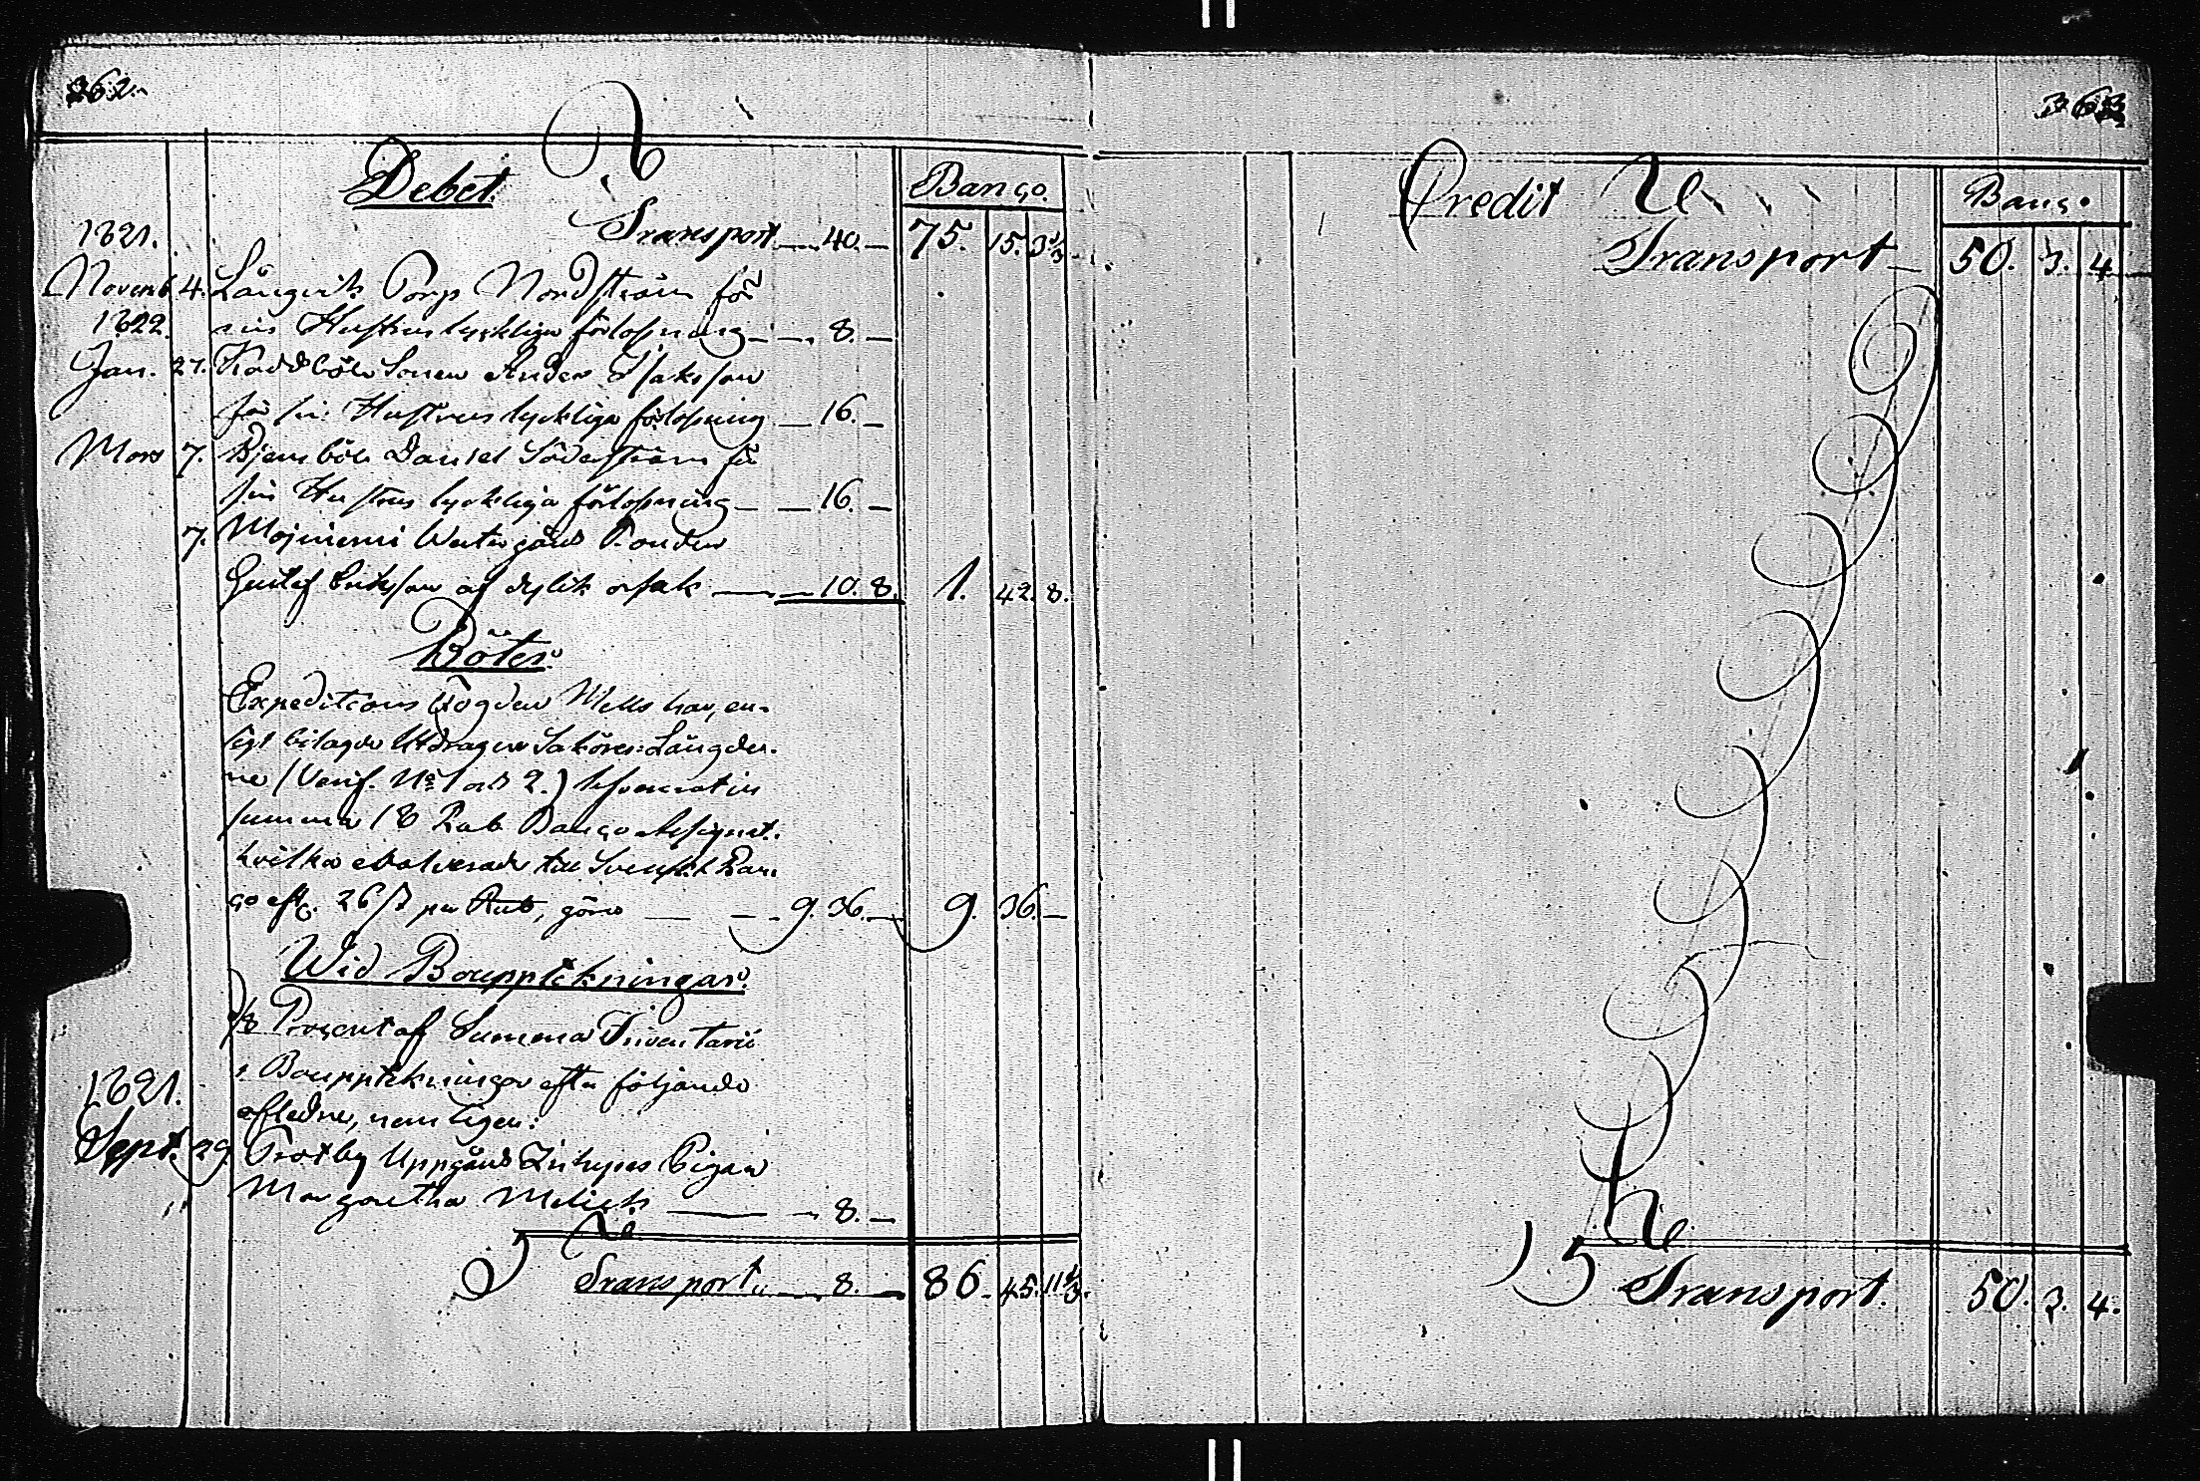 362.
Debet.
Banco.
Transport — 40. — 75. 15. 3 1/3
1821.
Novemb. 4. Långviks Torp Nordström för
1822. sin Hustrus lyckliga förlossning — 8. —
Jan. 27. Koddböle Sonen Anders Isaksson
för sin Hustrus lyckliga förlossning — 16. —
Mars 7. Bjensböle Daniel Söderström för
sin Hustrus lyckliga förlossning — 16. —
7. Mojniemi Westergårds Bonden
Gustaf Eriksson af dylik orsak — 10. 8. 1. 42. 8.
Böter.
Expeditions Fogden Mells har, en-
ligt bilagde Utdrag ur Saköres-Längder-
ne (Verif. No 1 och 2.) lefvererat in
summa 18 Rub. Banco Assignat.
hvilka evalverade till Svenskt Ban-
co efter 26 ß per Rub, göra — 9. 36. — 9. 36. —
Wid Bouppteckningar.
1/8 Procent af Summa Inventarii
i Bouppteckningar efter följande
1821. aflledne, nemligen:
Sept. 29. Trotby Uppgård Inhyses Pigan
" Margaretha Melick — 8. —
Transport — 8. — 86. 45. 11 1/3.
363
Credit
Banc.
Transport — 50. 3. 4. —
Transport. 50. 3. 4.